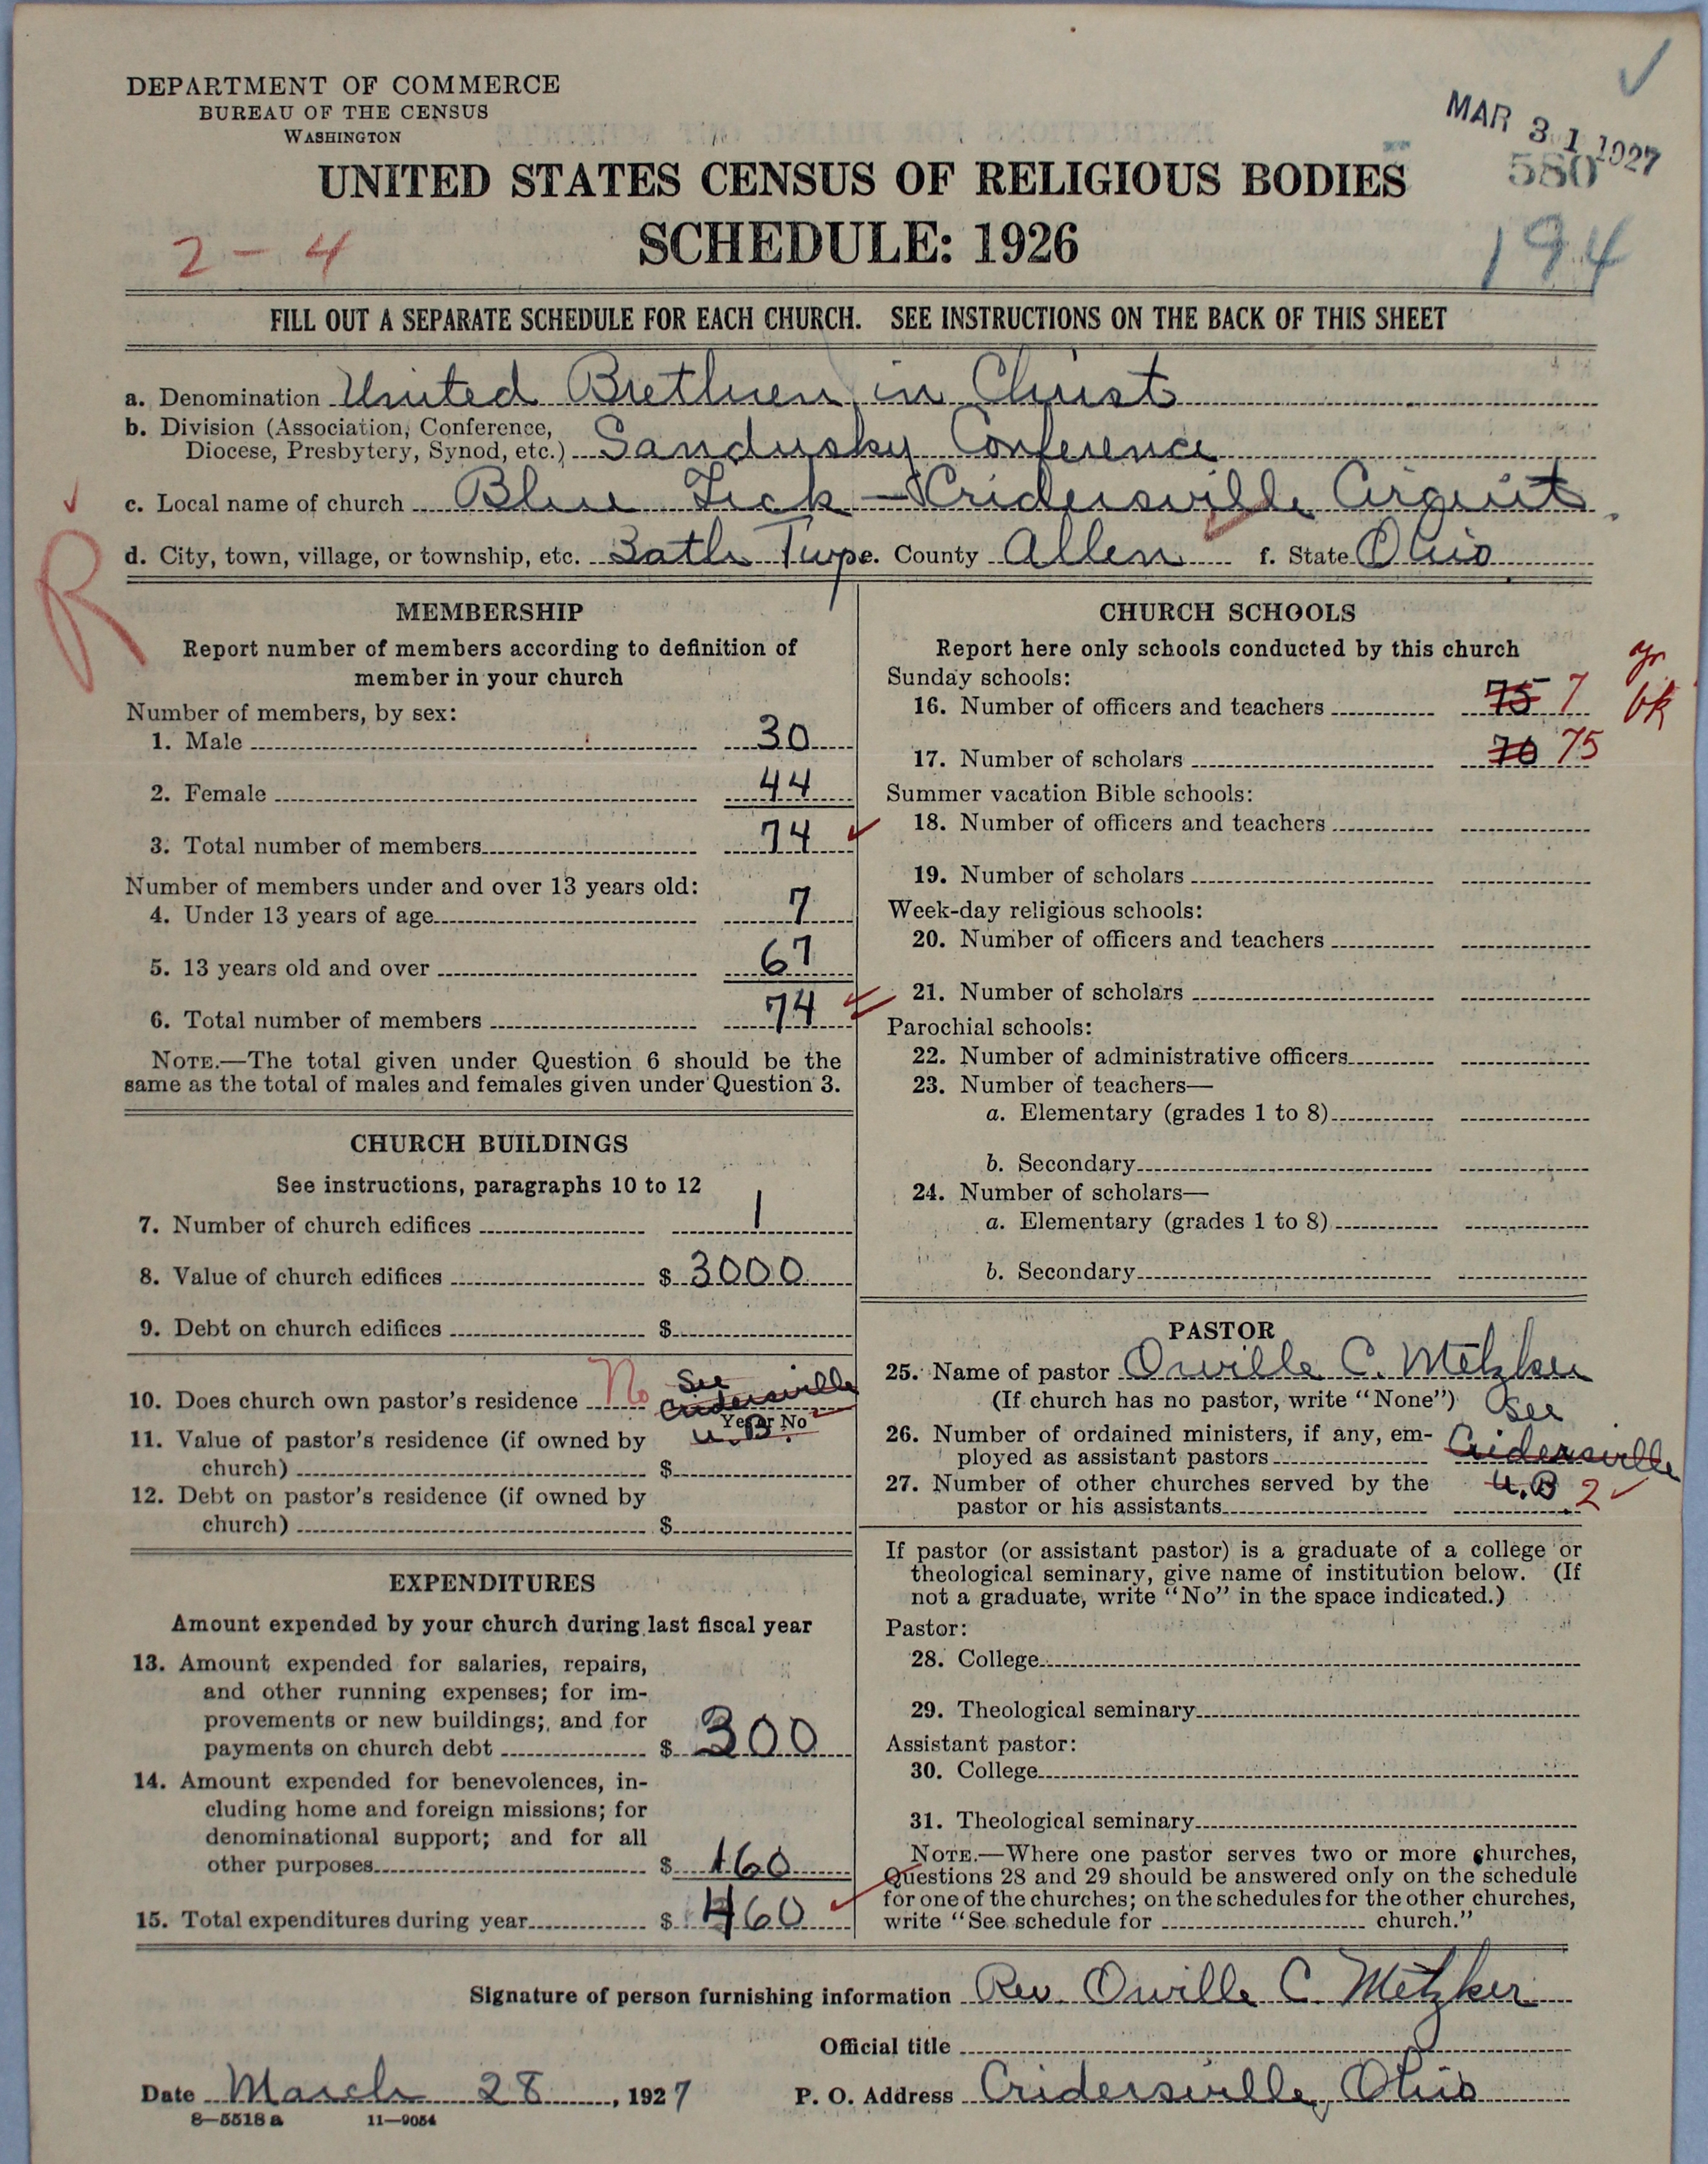 DEPARTMENT OF COMMERCE
BUREAU OF THE CENSUS
WASHINGTON
MAR 31 1927
580
UNITED STATES CENSUS OF RELIGIOUS BODIES
SCHEDULE: 1926
2 - 4
194
FILL OUT A SEPARATE SCHEDULE FOR EACH CHURCH. SEE INSTRUCTIONS ON THE BACK OF THIS SHEET
a. Denomination United Brethren in Christ
b. Division (Association, Conference,
Diocese, Presbytery, Synod, etc.) Sandusky Conference
c. Local name of church Blue Lick - Cridersville Cirquit
d. City, town, village, or township, etc. Bath Twp e. County Allen f. State Ohio
R
MEMBERSHIP
Report number of members according to definition of
member in your church
Number of members, by sex:
1. Male 30
2. Female 44
3. Total number of members 74
Number of members under and over 13 years old:
4. Under 13 years of age 7
5. 13 years old and over 67
6. Total number of members 74
NOTE.—The total given under Question 6 should be the
same as the total of males and females given under Question 3.
CHURCH BUILDINGS
See instructions, paragraphs 10 to 12
7. Number of church edifices 1
8. Value of church edifices $ 3000
9. Debt on church edifices $
10. Does church own pastor's residence No See
Cridersville
Yes or No
U.B.
11. Value of pastor's residence (if owned by
church) $
12. Debt on pastor's residence (if owned by
church) $
EXPENDITURES
Amount expended by your church during last fiscal year
13. Amount expended for salaries, repairs,
and other running expenses; for im-
provements or new buildings; and for
payments on church debt $ 300
14. Amount expended for benevolences, in-
cluding home and foreign missions; for
denominational support; and for all
other purposes $ 160
15. Total expenditures during year $ 460
CHURCH SCHOOLS
Report here only schools conducted by this church
Sunday schools:
16. Number of officers and teachers 75 7
yr
bk
17. Number of scholars 70 75
Summer vacation Bible schools:
18. Number of officers and teachers
19. Number of scholars
Week-day religious schools:
20. Number of officers and teachers
21. Number of scholars
Parochial schools:
22. Number of administrative officers
23. Number of teachers—
a. Elementary (grades 1 to 8)
b. Secondary
24. Number of scholars—
a. Elementary (grades 1 to 8)
b. Secondary
PASTOR
25. Name of pastor Orville C. Metzker
(If church has no pastor, write "None")
See
26. Number of ordained ministers, if any, em-
ployed as assistant pastors Cridersville
27. Number of other churches served by the U.B
pastor or his assistants 2
If pastor (or assistant pastor) is a graduate of a college or
theological seminary, give name of institution below. (If
not a graduate, write "No" in the space indicated.)
Pastor:
28. College
29. Theological seminary
Assistant pastor:
30. College
31. Theological seminary
NOTE.—Where one pastor serves two or more churches,
Questions 28 and 29 should be answered only on the schedule
for one of the churches; on the schedules for the other churches,
write "See schedule for church."
Signature of person furnishing information Rev. Orville C. Metzker
Official title
Date March 28, 1927 P. O. Address Cridersville, Ohio
8—5518 a 11—9054